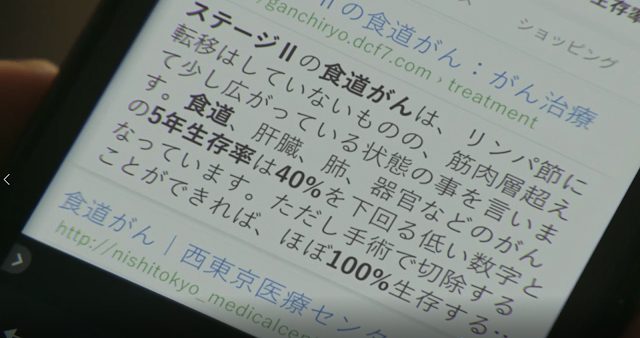 生存率
ショッピング
IIの食道がん:がん治療
/ganchiryo.dcf7.com › treatment
ステージIIの食道がんは、リンパ節に
転移はしていないものの、筋肉層超え
て少し広がっている状態の事を言いま
す。食道、肝臓、肺、器官などのがん
の5年生存率は40%を下回る低い数字と
なっています。ただし手術で切除する
ことができれば、ほぼ100%生存する…
食道がん | 西東京医療センタ
http://nishitokyo_medicalcen